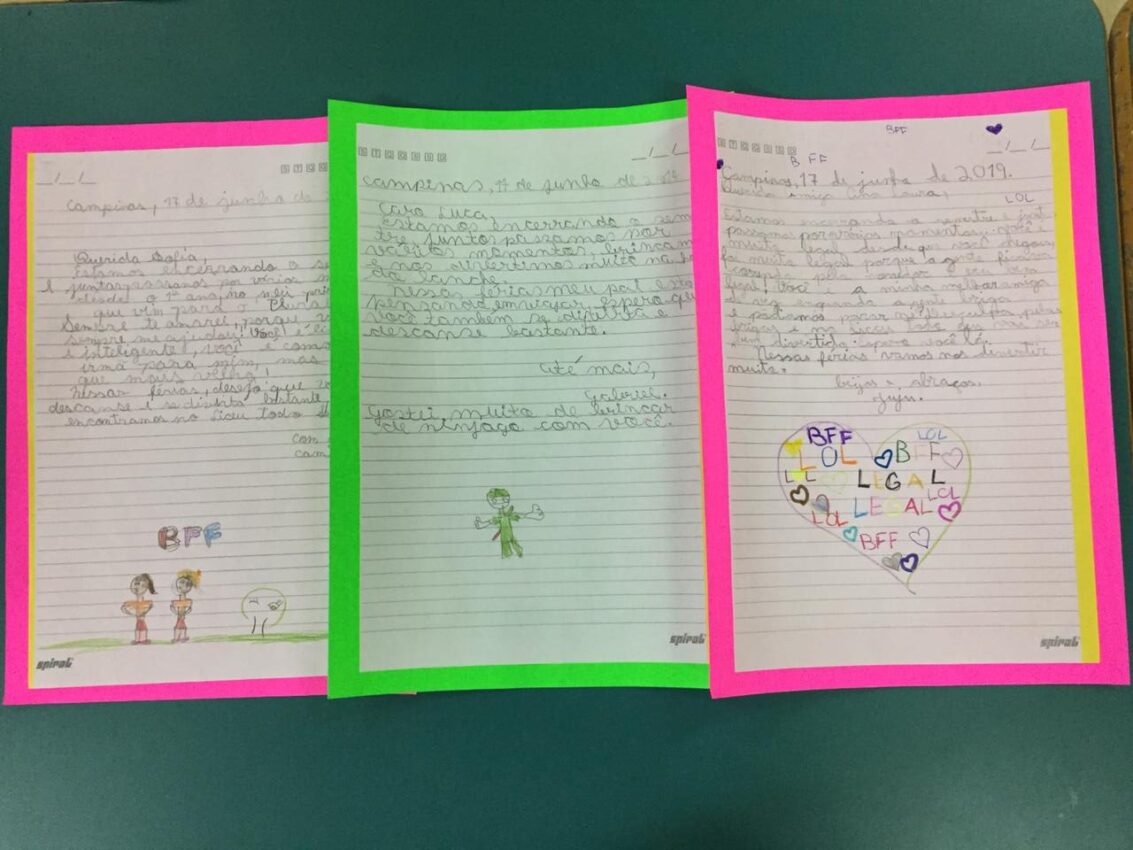 Campinas, 17 de junho de
Querida Sofia,
Estamos encerrando o se
E juntas passamos por vários
desde o 1º ano, no meu pri
que vim para o
Sempre te amarei, porque vo
sempre me ajudou! Você é li
e inteligente!, você é como
irmã para mim, mas
que mais
Nessas férias, desejo que vo
descanse e se divirta bastante,
encontramos no Liceu todo
com
cam
BFF
spiral
Campinas, 17 de junho de 2019
Caro Luca,
Estamos encerrando o semes
tre juntos passamos por
vários momentos, brincam
e nos divertimos muito na h
do lanche.
Nessas férias meu pai esta
pensando em viajar. Espero que
você também se divirta e
descanse bastante.
Até mais,
Gabriel.
Gostei muito de brincar
de ninjago com você.
spiral
BFF
BFF
Campinas, 17 de junho de 2019.
Querida amiga Ana Laura,
LOL
Estamos encerrando o semestre e juntas
passamos por vários momentos, você é
muito legal desde que você chegou,
foi muito legal porque a gente ficava
legal! Você é a minha melhor amiga
de vez enquando a gente briga
e podiamos parar
divertido. Espero você lá.
Nessas férias vamos nos divertir
muito.
beijos e abraços.
Juju.
BFF LOL
LOL BFF
LOL LEGAL
LEGAL LOL
LOL
BFF
spiral